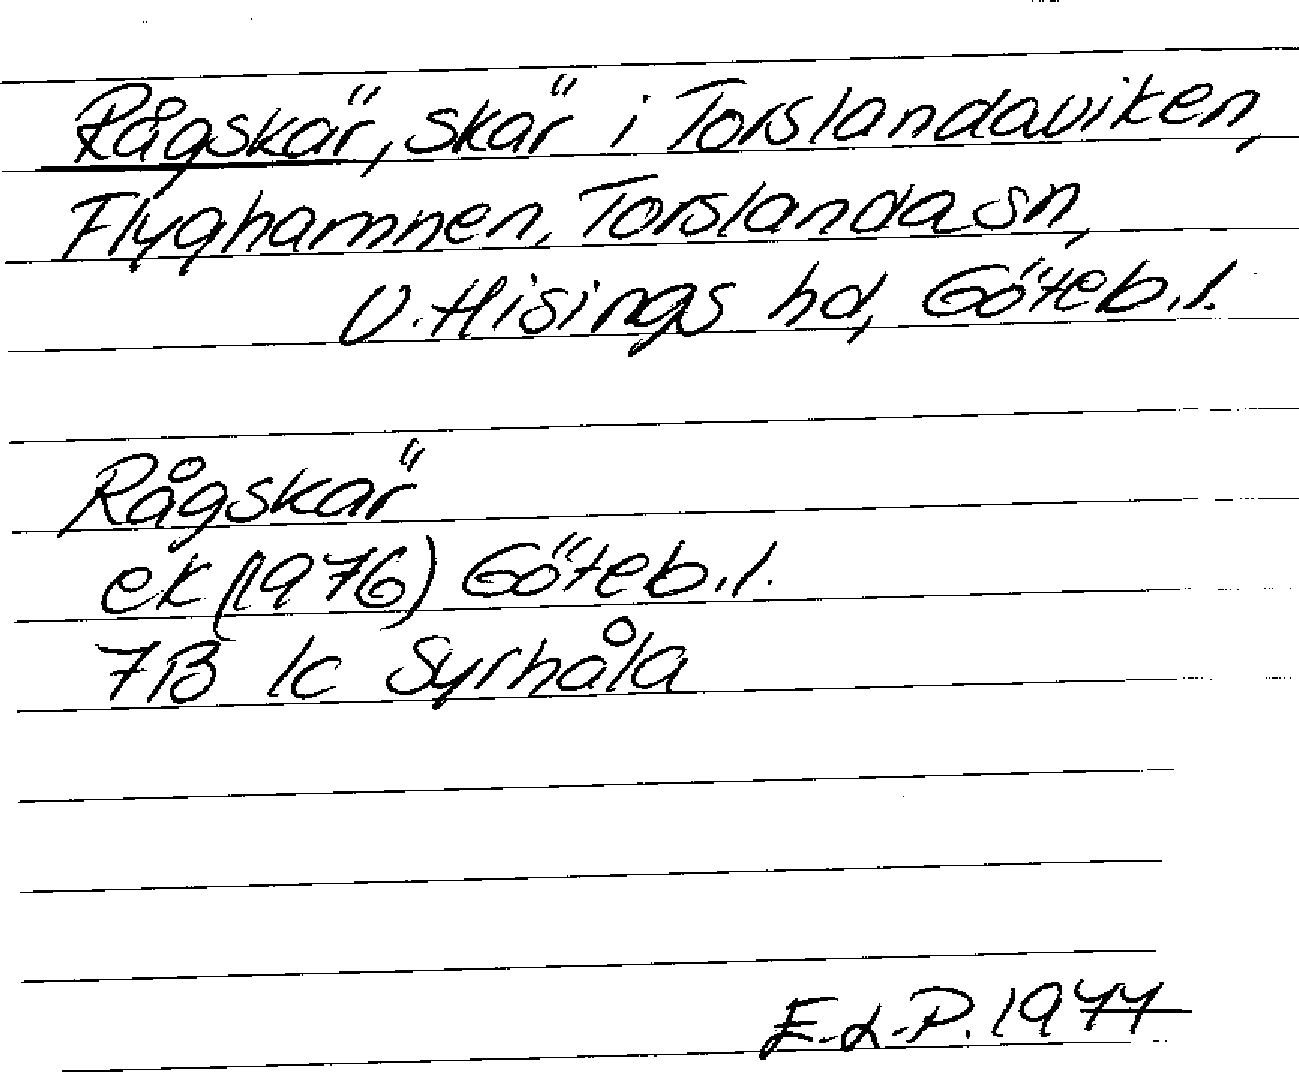 Rågskär, skär i Torslandaviken,
Flyghamnen, Torslanda sn,
V. Hisings hd, Göteb. l.
Rågskär
ek (1976) Göteb. l.
7B 1c Syrhåla
E-L-P. 1977